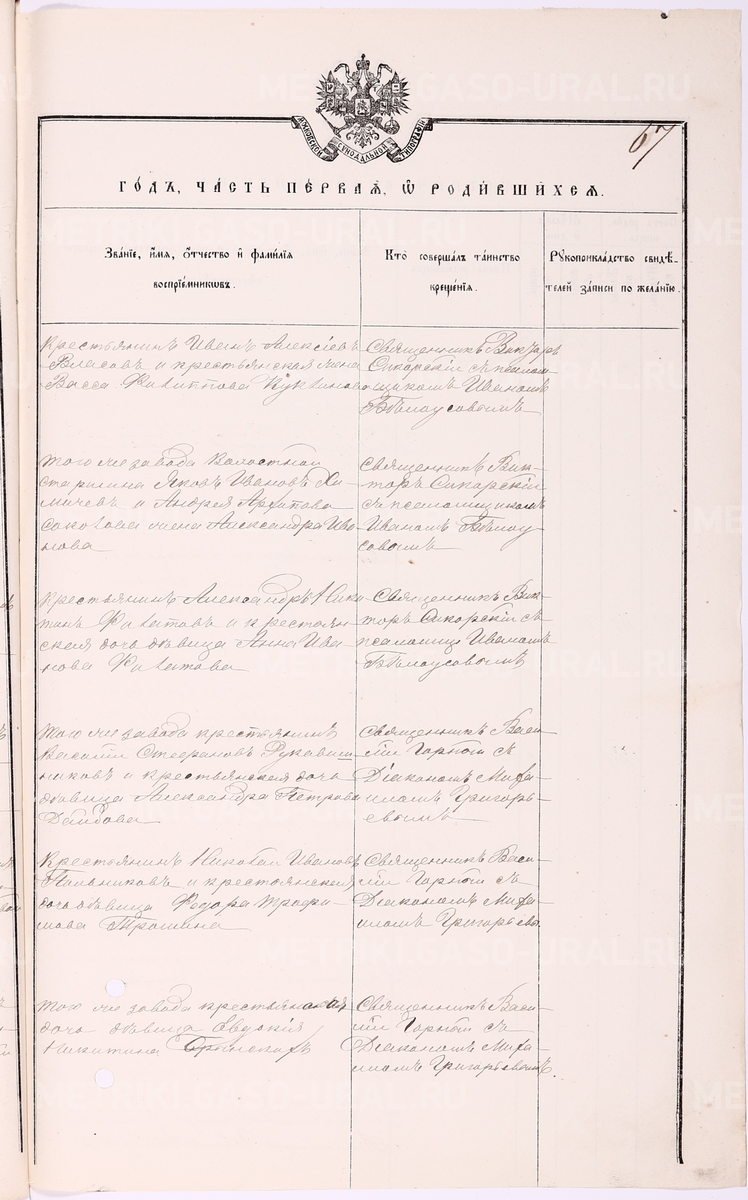 67
МОСКОВСКОЙ СѴНОДАЛЬНОЙ ТИПОГРАФІИ
ГО́ДЪ, ЧА́СТЬ ПЕ́РВАѦ, Ѡ҆ РОДИ́ВШИХСѦ.
Зва́нїе, и҆́мѧ, ѻ҆́тчество и҆ фами́лїѧ
воспрїе́мникѡвъ.
Кто̀ соверша́лъ та́инство
креще́нїѧ.
Рꙋкоприкла́дство свидѣ́-
телей за́писи по жела́нїю.
Крестьянинъ Иванъ Алексѣевъ
Власовъ и крестьянская жена
Васса Филиппова
Священникъ Викторъ
Сикорскій съ псалом-
щикомъ Иваномъ
Бѣлоусовымъ
того же завода Волостной
старшина Яковъ Ивановъ Хи-
мичевъ и Андрея Архипова
Соколова жена Александра Ива-
нова
Священникъ Вик-
торъ Сикорскій
съ псаломщикомъ
Иваномъ Бѣлоу-
совымъ
Крестьянинъ Александръ Ники-
тинъ и крестьян-
ская дочь дѣвица Анна Ива-
нова
Священникъ Вик-
торъ Сикорскій съ
псаломщ Иваномъ
Бѣлоусовымъ
Того же завода крестьянинъ
Василій Стефановъ Рукавиш-
никовъ и крестьянская дочь
дѣвица Александра Петрова
Священникъ Васи-
лій Горный съ
Діакономъ Миха-
иломъ Григорь-
евымъ
Крестьянинъ Николай Ивановъ
Пальниковъ и крестьянская
дочь дѣвица Федора Трофи-
мова Трошина
Священникъ Васи-
лій Горный съ
Діакономъ Миха-
иломъ Григорьевы.
Того же завода крестьянская
дочь дѣвица Евдокія
Никитина
Священникъ Васи-
лій Горный съ
Діакономъ Миха-
иломъ Григорьевымъ.
METRIKI.GASO-URAL.RU